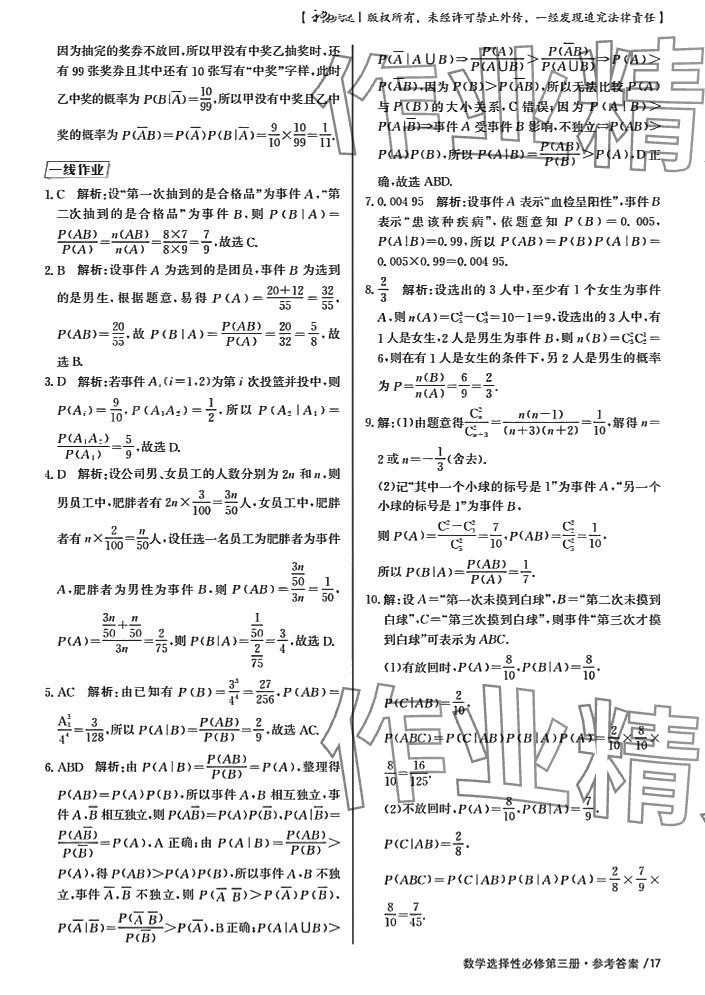 版权所有，未经许可禁止外传，一经发现追究法律责任】
因为抽完的奖券不放回,所以甲没有中奖乙抽奖时,还
有 99 张奖券且其中还有 10 张写有“中奖”字样,此时
乙中奖的概率为 P(B|A̅)=10/99,所以甲没有中奖且乙中
奖的概率为 P(A̅B)=P(A̅)P(B|A̅)=9/10×10/99=1/11.
一线作业
1.C 解析:设“第一次抽到的是合格品”为事件 A,“第
二次抽到的是合格品”为事件 B,则 P(B|A)=
P(AB)/P(A)=n(AB)/n(A)=8×7/8×9=7/9,故选C.
2.B 解析:设事件 A 为选到的是团员,事件 B 为选到
的是男生,根据题意,易得 P(A)=20+12/55=32/55,
P(AB)=20/55,故 P(B|A)=P(AB)/P(A)=20/32=5/8,故
选B.
3.D 解析:若事件Aᵢ(i=1,2)为第 i 次投篮并投中,则
P(A₁)=9/10,P(A₁A₂)=1/2,所以 P(A₂|A₁)=
P(A₁A₂)/P(A₁)=5/9,故选D.
4.D 解析:设公司男、女员工的人数分别为 2n 和 n,则
男员工中,肥胖者有 2n×3/100=3n/50人,女员工中,肥胖
者有 n×2/100=n/50人,设任选一名员工为肥胖者为事件
A,肥胖者为男性为事件 B,则 P(AB)=(3n/50)/3n=1/50,
P(A)=(3n/50+n/50)/3n=2/75,则 P(B|A)=(1/50)/(2/75)=3/4,故选D.
5.AC 解析:由已知有 P(B)=3³/4⁴=27/256,P(AB)=
A₃³/4⁴=3/128,所以 P(A|B)=P(AB)/P(B)=2/9,故选 AC.
6.ABD 解析:由 P(A|B)=P(AB)/P(B)=P(A),整理得
P(AB)=P(A)P(B),所以事件 A,B 相互独立,事
件 A,B̅ 相互独立,则 P(AB̅)=P(A)P(B̅),P(A|B̅)=
P(AB̅)/P(B̅)=P(A),A 正确;由 P(A|B)=P(AB)/P(B)>
P(A),得 P(AB)>P(A)P(B),所以事件 A,B 不独
立,事件 A̅,B̅ 不独立,则 P(A̅ B̅)>P(A̅)P(B̅),
P(A̅|B̅)=P(A̅ B̅)/P(B̅)>P(A̅),B正确;P(A|A∪B)>
P(A̅|A∪B)⇒P(A)/P(A∪B)>P(A̅B)/P(A∪B)⇒P(A)>
P(A̅B),因为P(B)>P(A̅B),所以无法比较 P(A)
与 P(B)的大小关系,C 错误;因为 P(A|B)>
P(A|B̅)⇒事件 A 受事件 B 影响,不独立⇒P(AB)>
P(A)P(B),所以P(A|B)=P(AB)/P(B)>P(A),D正
确,故选 ABD.
7.0.004 95 解析:设事件 A 表示“血检呈阳性”,事件 B
表示“患该种疾病”,依题意知 P(B)=0.005,
P(A|B)=0.99,所以 P(AB)=P(B)P(A|B)=
0.005×0.99=0.004 95.
8.2/3 解析:设选出的 3 人中,至少有 1 个女生为事件
A,则 n(A)=C₅³−C₃³=10−1=9,设选出的 3 人中,有
1 人是女生,2 人是男生为事件 B,则 n(B)=C₃²C₂¹=
6,则在有 1 人是女生的条件下,另 2 人是男生的概率
为 P=n(B)/n(A)=6/9=2/3.
9.解:(1)由题意得Cₙ²/Cₙ₊₃²=n(n−1)/(n+3)(n+2)=1/10,解得 n=
2或n=−1/3(舍去).
(2)记“其中一个小球的标号是 1”为事件 A,“另一个
小球的标号是 1”为事件 B,
则 P(A)=C₅²−C₃²/C₅²=7/10,P(AB)=C₂²/C₅²=1/10,
所以 P(B|A)=P(AB)/P(A)=1/7.
10.解:设 A=“第一次未摸到白球”,B=“第二次未摸到
白球”,C=“第三次摸到白球”,则事件“第三次才摸
到白球”可表示为ABC.
(1)有放回时,P(A)=8/10,P(B|A)=8/10,
P(C|AB)=2/10,
P(ABC)=P(C|AB)P(B|A)P(A)=2/10×8/10×
8/10=16/125.
(2)不放回时,P(A)=8/10,P(B|A)=7/9,
P(C|AB)=2/8,
P(ABC)=P(C|AB)P(B|A)P(A)=2/8×7/9×
8/10=7/45.
作业精
作业精
数学选择性必修第三册·参考答案/17